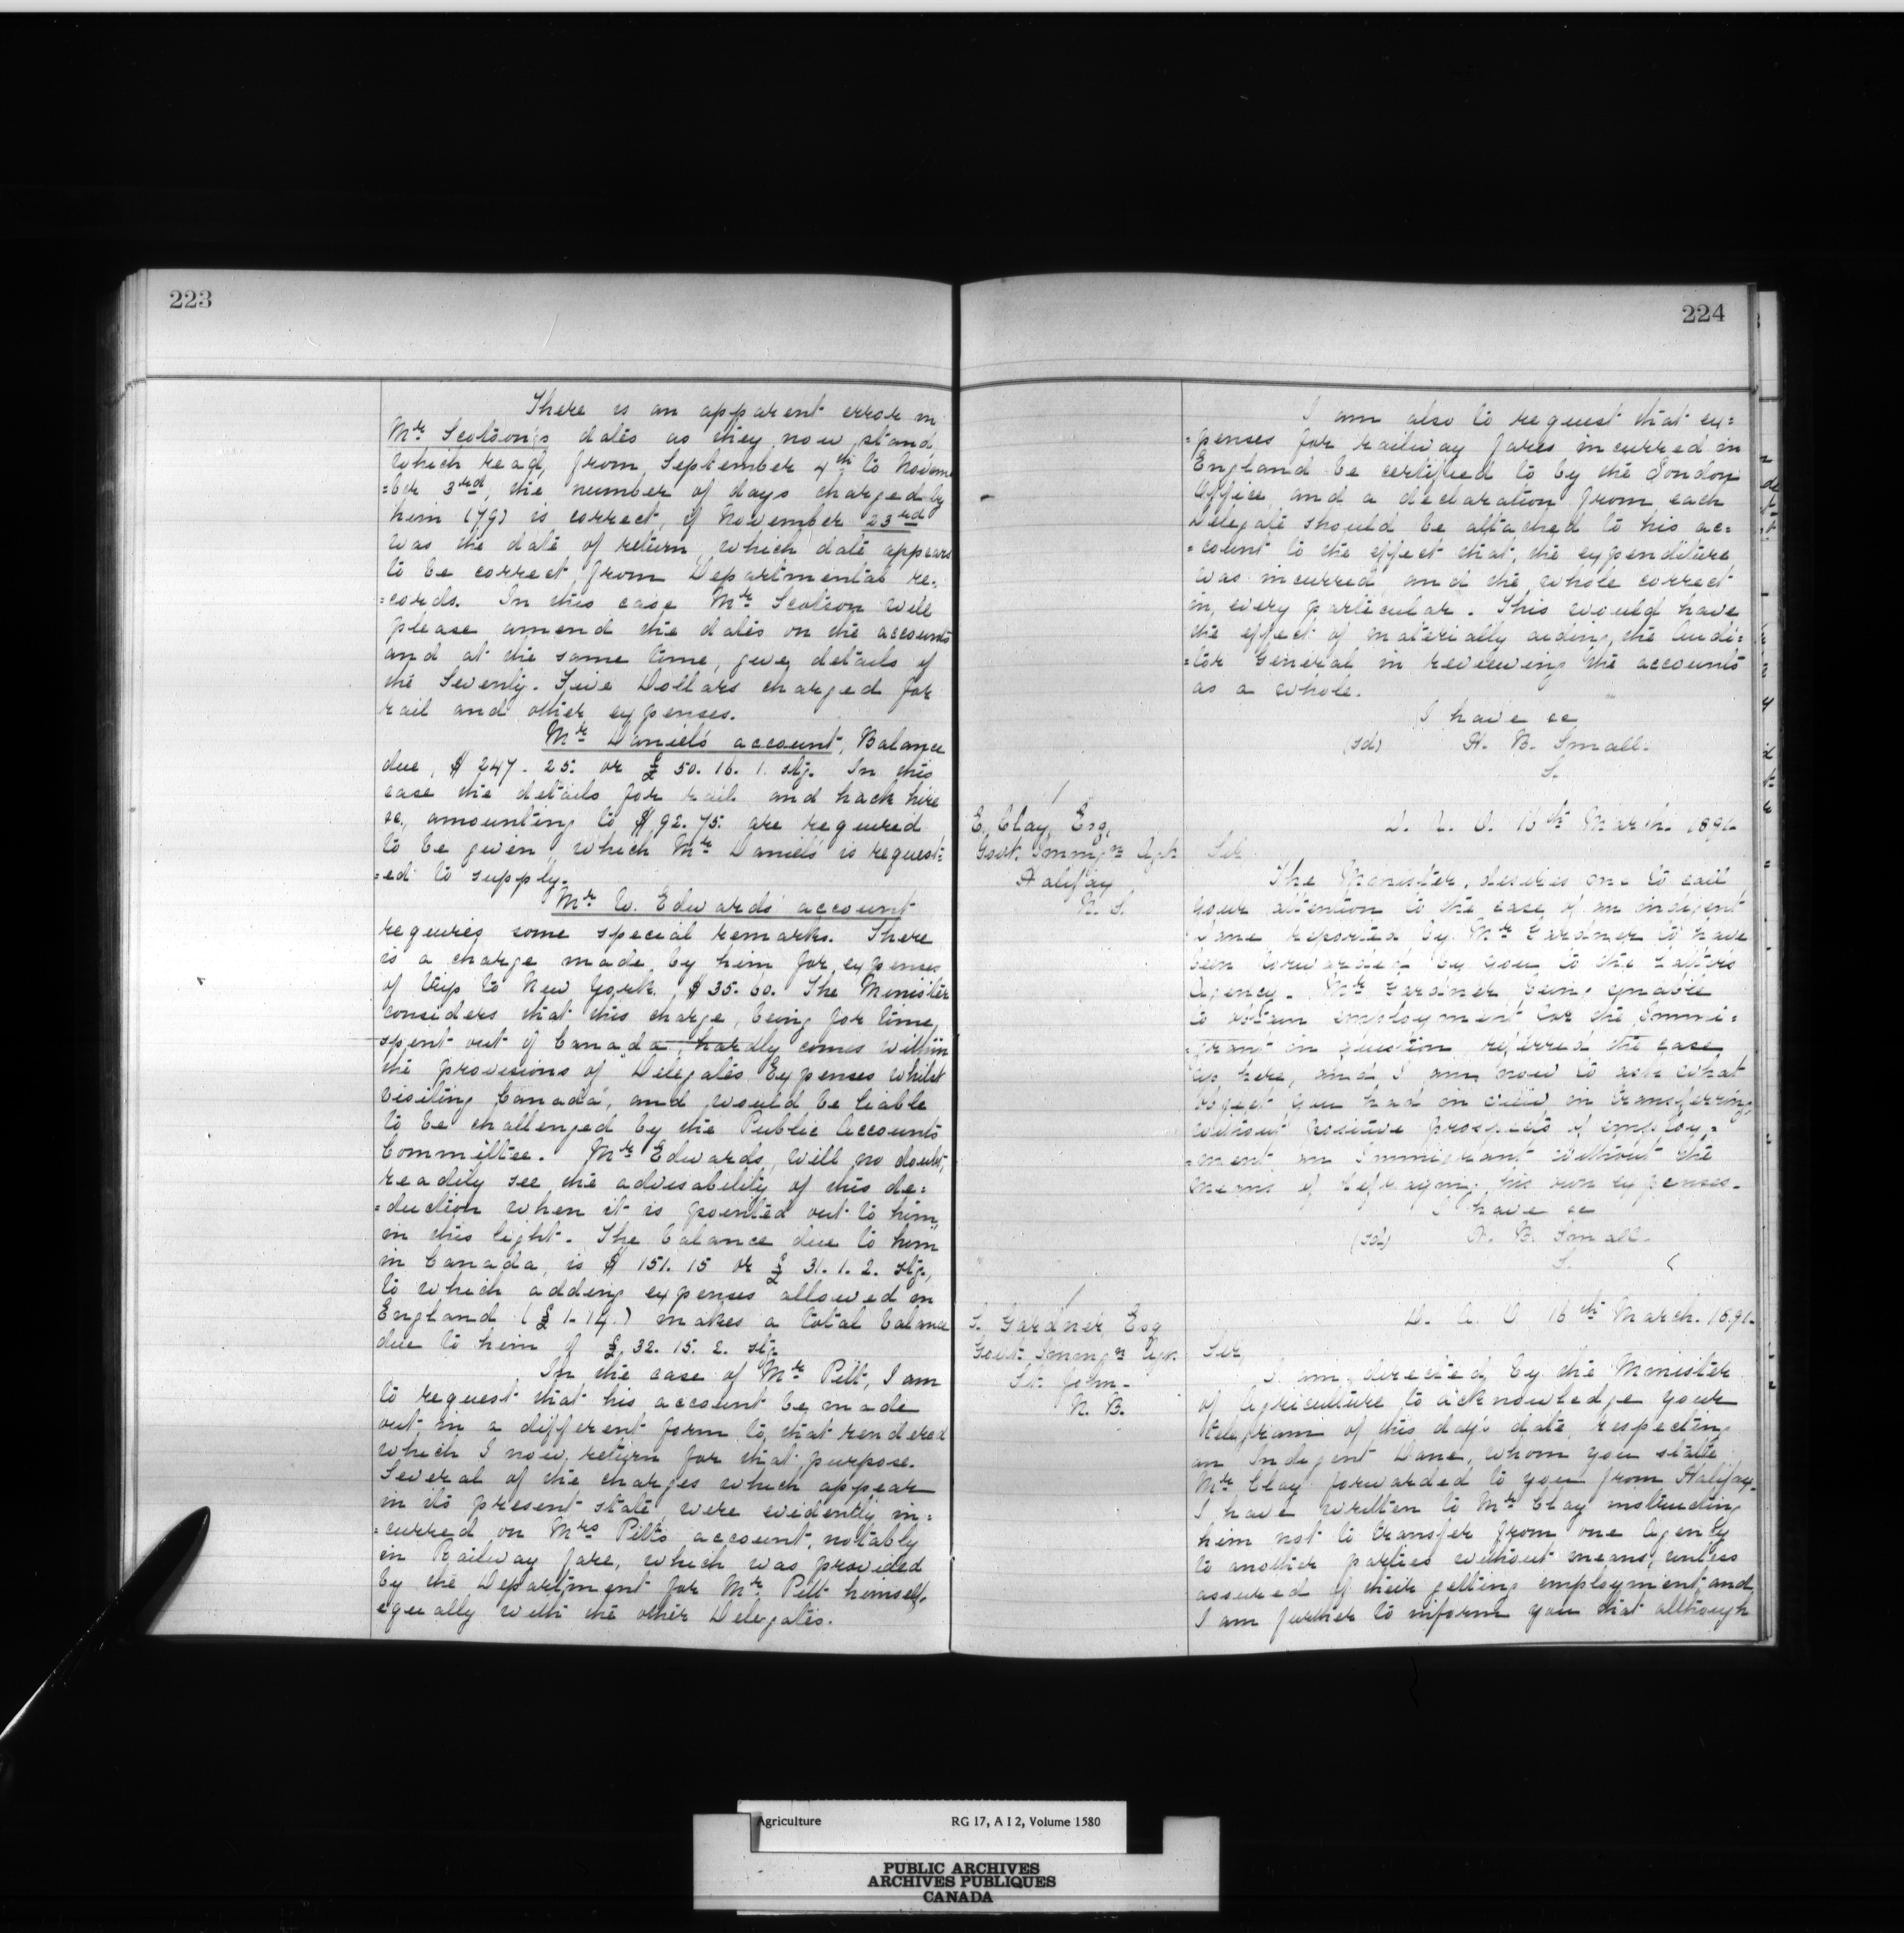 223
There is an apparent error in
Mr Scotson's dates as they now stand,
which read, from September 4th to Novem
=ber 3rd, the number of days charged by
him (79) is correct, if November 23rd
was the date of return, which date appears
to be correct, from Departmental re-
=cords. In this case Mr Scotson will
please amend the dates on the accounts
and at the same time, give details of
the Seventy-Five Dollars charged for
rail and other expenses.
Mr Daniel's account, Balance
due, $247.25. or £50.16.1. stg. In this
case the details for rail and hack hire
&c., amounting to $92.75. are required
to be given which Mr Daniels is request:
=ed to supply.
Mr W. Edwards' account
requires some special remarks. There
is a charge made by him for expenses
of trip to New York, $35.60. The Minister
considers that this charge, being for time,
spent out of Canada, hardly comes within
the provisions of "Delegates Expenses whilst
visiting Canada", and would be liable
to be challenged by the Public Accounts
Committee. Mr Edwards, will no doubt,
readily see the advisability of this de=
=duction when it is pointed out to him,
in this light. The balance due to him
in Canada, is $151.15 or £31.1.2. stg,
to which adding expenses allowed in
England (£1-14.) makes a total balance
due to him of £32.15.2. stg.
In the case of Mr Pitt, I am
to request that his account be made
out in a different form to that rendered
which I now return for that purpose.
Several of the charges which appear
in its present state, were evidently in=
=curred on Mrs Pitt's account, notably
in Railway fare, which was provided
by the Department for Mr Pitt himself,
equally with the other Delegates.
224
I am also to request that ex=
=penses for railway fares incurred in
England be certified to by the London
Office, and a declaration from each
Delegate should be attached to his ac=
=count to the effect that the expenditure
was incurred and the whole correct
in every particular. This would have
the effect of materially aiding the Audi=
=tor General in reviewing the accounts
as a whole.
I have &c
(sd) H. B. Small.
S.
E. Clay, Esq,
Govt. Immgn Agt.
Halifax
N. S.
D. A. O. 16th March. 1891.
Sir
The Minister, desires me to call
your attention to the case of an indigent
Dane reported by Mr Gardner to have
been forwarded by you to the latters
Agency. Mr Gardner being unable
to obtain employment for the Immi=
=grant in question referred the case
up here, and I am now to ask what
object you had in view in transferring
without positive prospects of employ=
=ment, an Immigrant without the
means of defraying his own expenses.
I have &c
(sd) H. B. Small.
S.
S. Gardner, Esq
Govt. Immgn Agt.
St. John.
N. B.
D. A. O 16th March. 1891.
Sir,
I am, directed, by the Minister
of Agriculture to acknowledge your
telegram of this day's date, respecting
an Indigent Dane, whom you state
Mr Clay forwarded to you from Halifax.
I have written to Mr Clay instructing
him not to transfer from one Agency
to another parties without means, unless
assured of their getting employment, and
I am further to inform you that although
Agriculture RG 17, A I 2, Volume 1580
PUBLIC ARCHIVES
ARCHIVES PUBLIQUES
CANADA